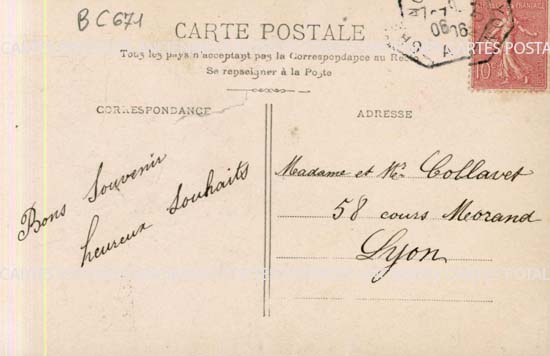 BC671
CARTE POSTALE
Tous les pays n'acceptant pas la Correspondance au Recto
Se renseigner à la Poste
CORRESPONDANCE
ADRESSE
Bons Souvenir
heureux souhaits
Madame et Mr Collavet
58 cours Morand
Lyon
10
06